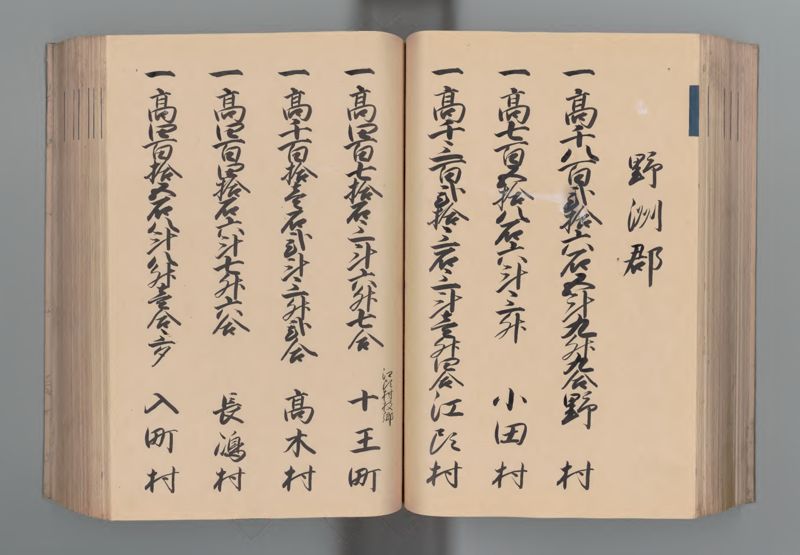 野洲郡
一高千八百弐拾六石五斗九升九合野村
一高七百五拾八石六斗三升 小田村
一高千三百弐拾三石三斗壱升四合江頭村
江頭村枝郷
一高四百七拾石三斗六升七合 十王町
一高千百拾壱石弐斗三升弐合 高木村
一高四百四拾石六斗七升六合 長嶋村
一高四百拾五石八斗八升壱合三夕 入町村